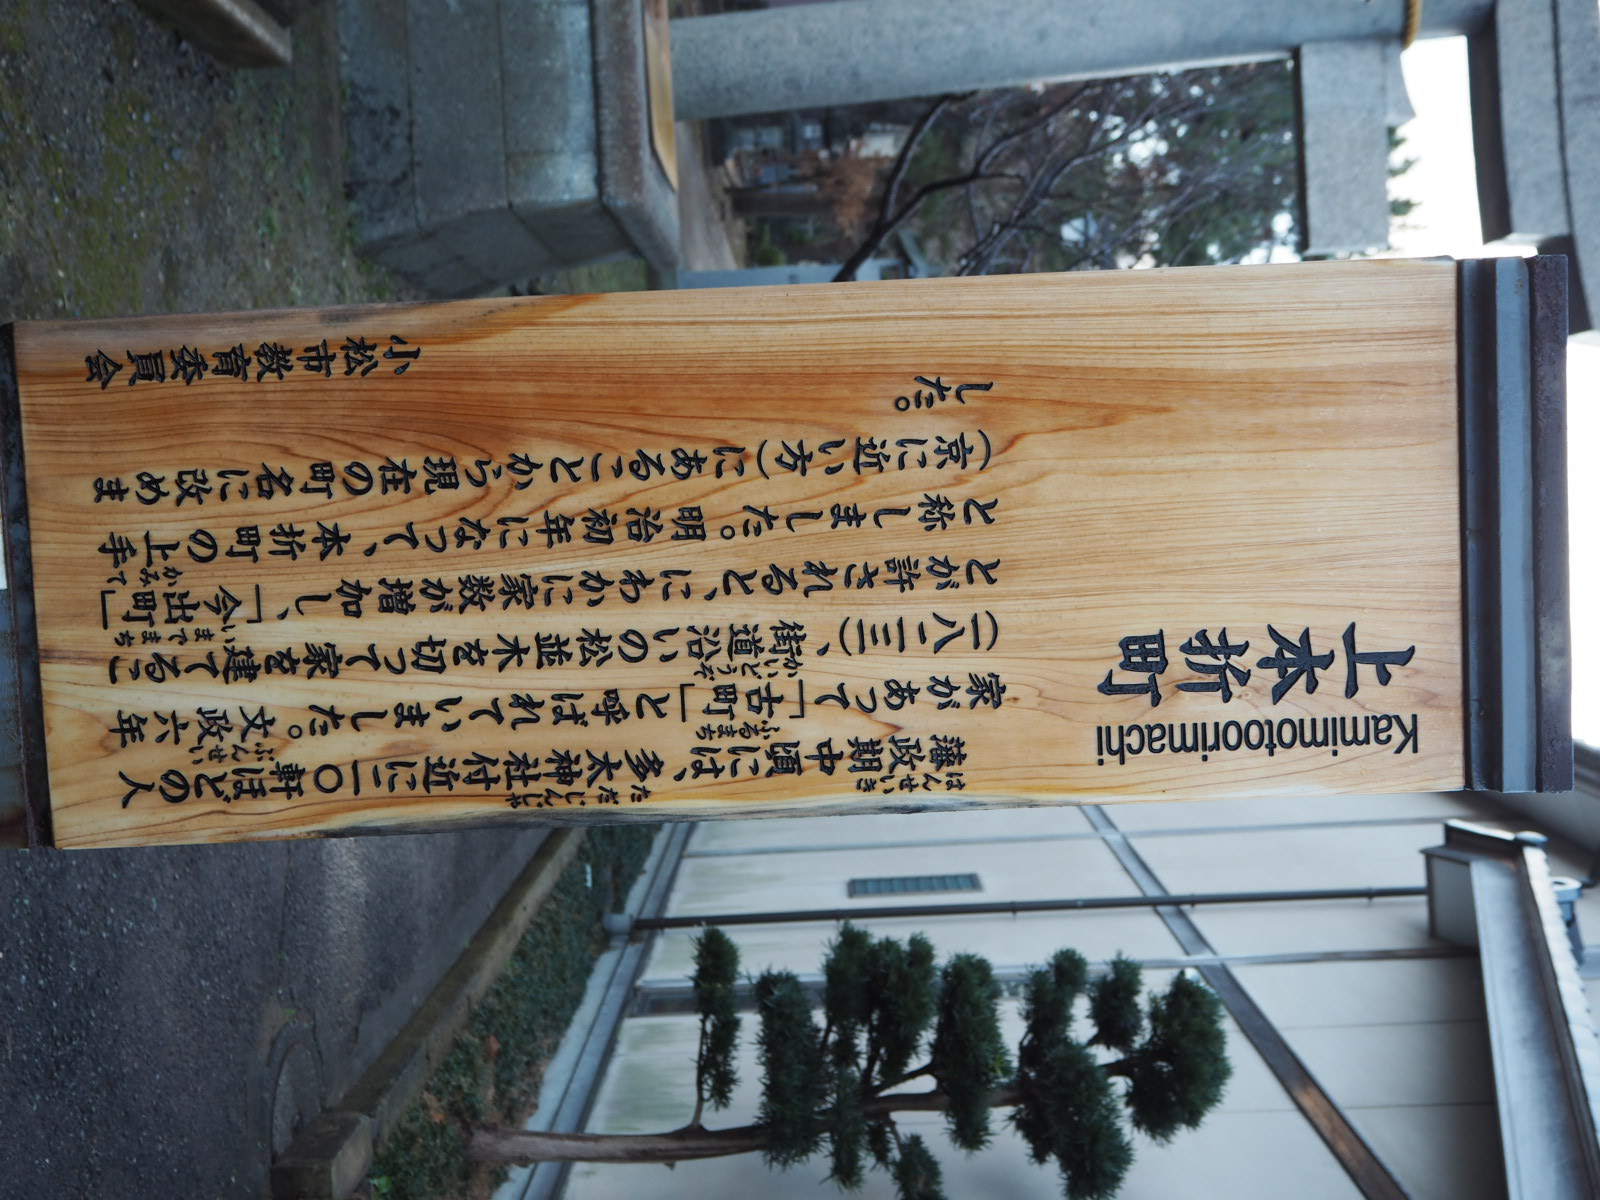 上本折町
Kamimotoorimachi
はんせいき ただじんじゃ
藩政期中頃には、多太神社付近に二〇軒ほどの人
ふるまち ぶんせい
家があって「古町」と呼ばれていました。文政六年
かいどうぞ
(一八二三)、街道沿いの松並木を切って家を建てるこ
いまでまち
とが許されると、にわかに家数が増加し、「今出町」
かみて
と称しました。明治初年になって、本折町の上手
(京に近い方)にあることから現在の町名に改めま
した。
小松市教育委員会